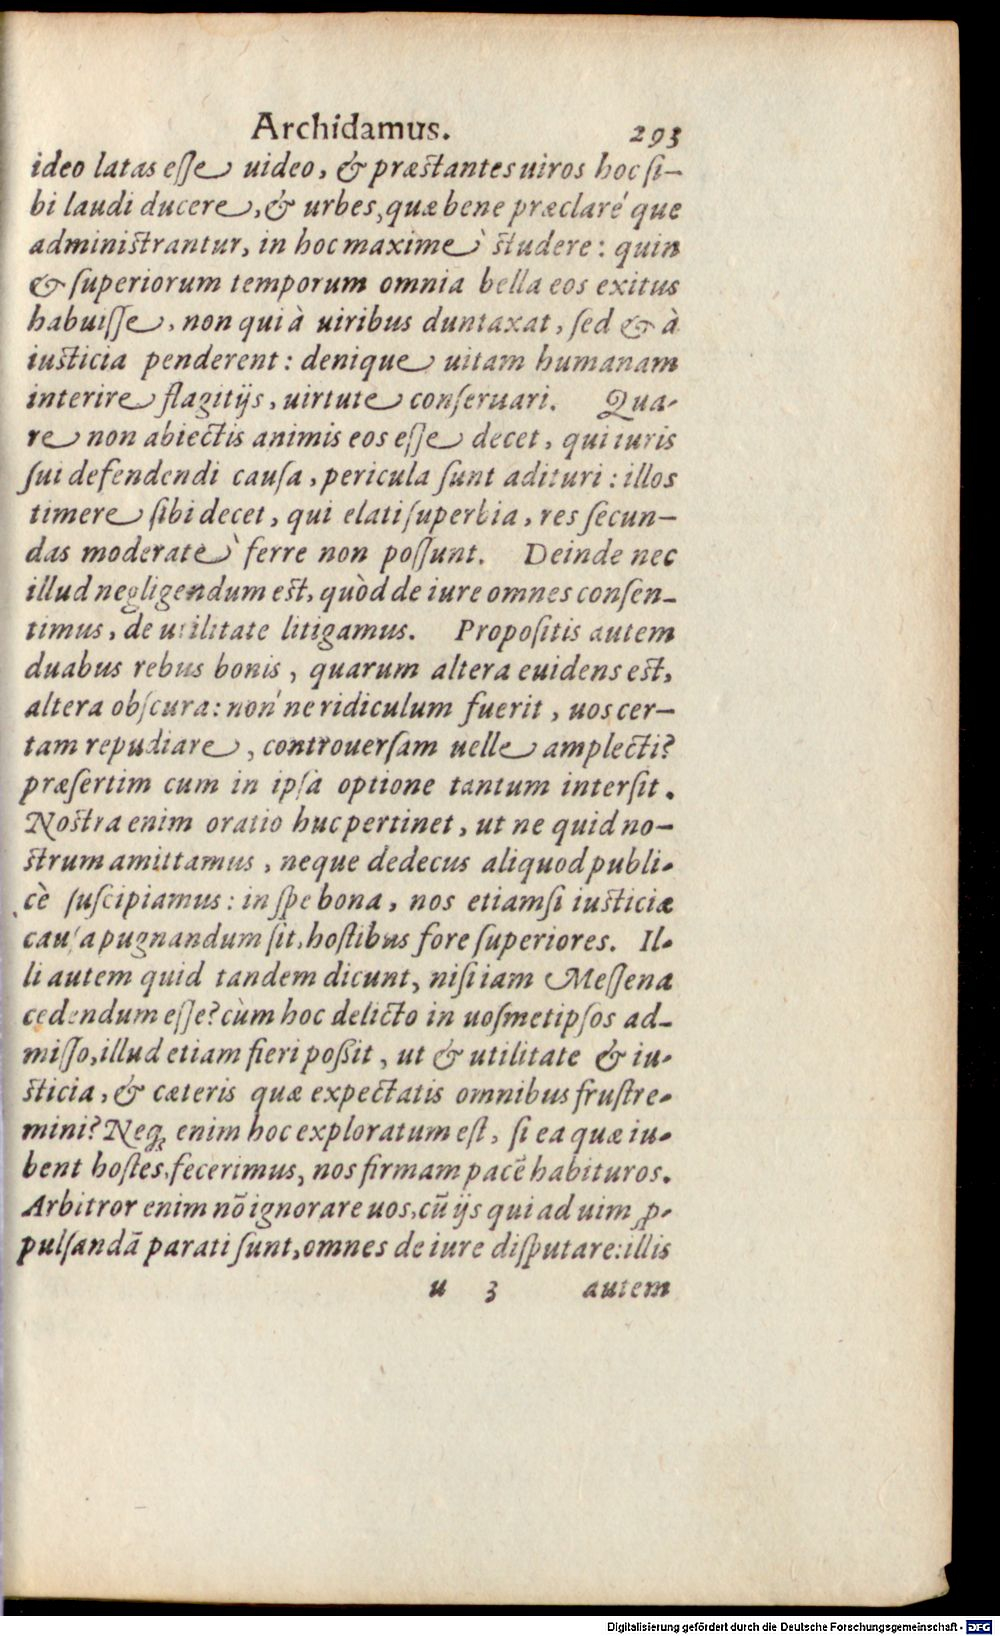 Archidamus. 293
ideo latas eſſe uideo, & præstantes uiros hoc ſi-
bi laudi ducere, & urbes, quæ bene præclaré que
administrantur, in hoc maximè studere: quin
& ſuperiorum temporum omnia bella eos exitus
habuiſſe, non qui à uiribus duntaxat, ſed & à
iusticia penderent: denique uitam humanam
interire flagitijs, uirtute conſeruari. Qua-
re non abiectis animis eos eſſe decet, qui iuris
ſui defendendi cauſa, pericula ſunt adituri: illos
timere ſibi decet, qui elati ſuperbia, res ſecun-
das moderatè ferre non poſſunt. Deinde nec
illud negligendum est, quòd de iure omnes conſen-
timus, de utilitate litigamus. Propoſitis autem
duabus rebus bonis, quarum altera euidens est,
altera obſcura: non' ne ridiculum fuerit, uos cer-
tam repudiare, controuerſam uelle amplecti?
præſertim cum in ipſa optione tantum interſit.
Nostra enim oratio huc pertinet, ut ne quid no-
strum amittamus, neque dedecus aliquod publi-
cè ſuſcipiamus: in ſpe bona, nos etiamſi iusticiæ
cauſa pugnandum ſit, hoſtibus fore ſuperiores. Il-
li autem quid tandem dicunt, niſi iam Meſſena
cedendum eſſe? cùm hoc delicto in uoſmetipſos ad-
miſſo, illud etiam fieri poßit, ut & utilitate & iu-
sticia, & cæteris quæ expectatis omnibus fruſtre-
mini? Neqꝫ enim hoc exploratum eſt, ſi ea quæ iu-
bent hoſtes, fecerimus, nos firmam pacẽ habituros.
Arbitror enim nõ ignorare uos, cũ ijs qui ad uim ꝓ-
pulſandã parati ſunt, omnes de iure diſputare: illis
u 3 autem
Digitalisierung gefördert durch die Deutsche Forschungsgemeinschaft - DFG